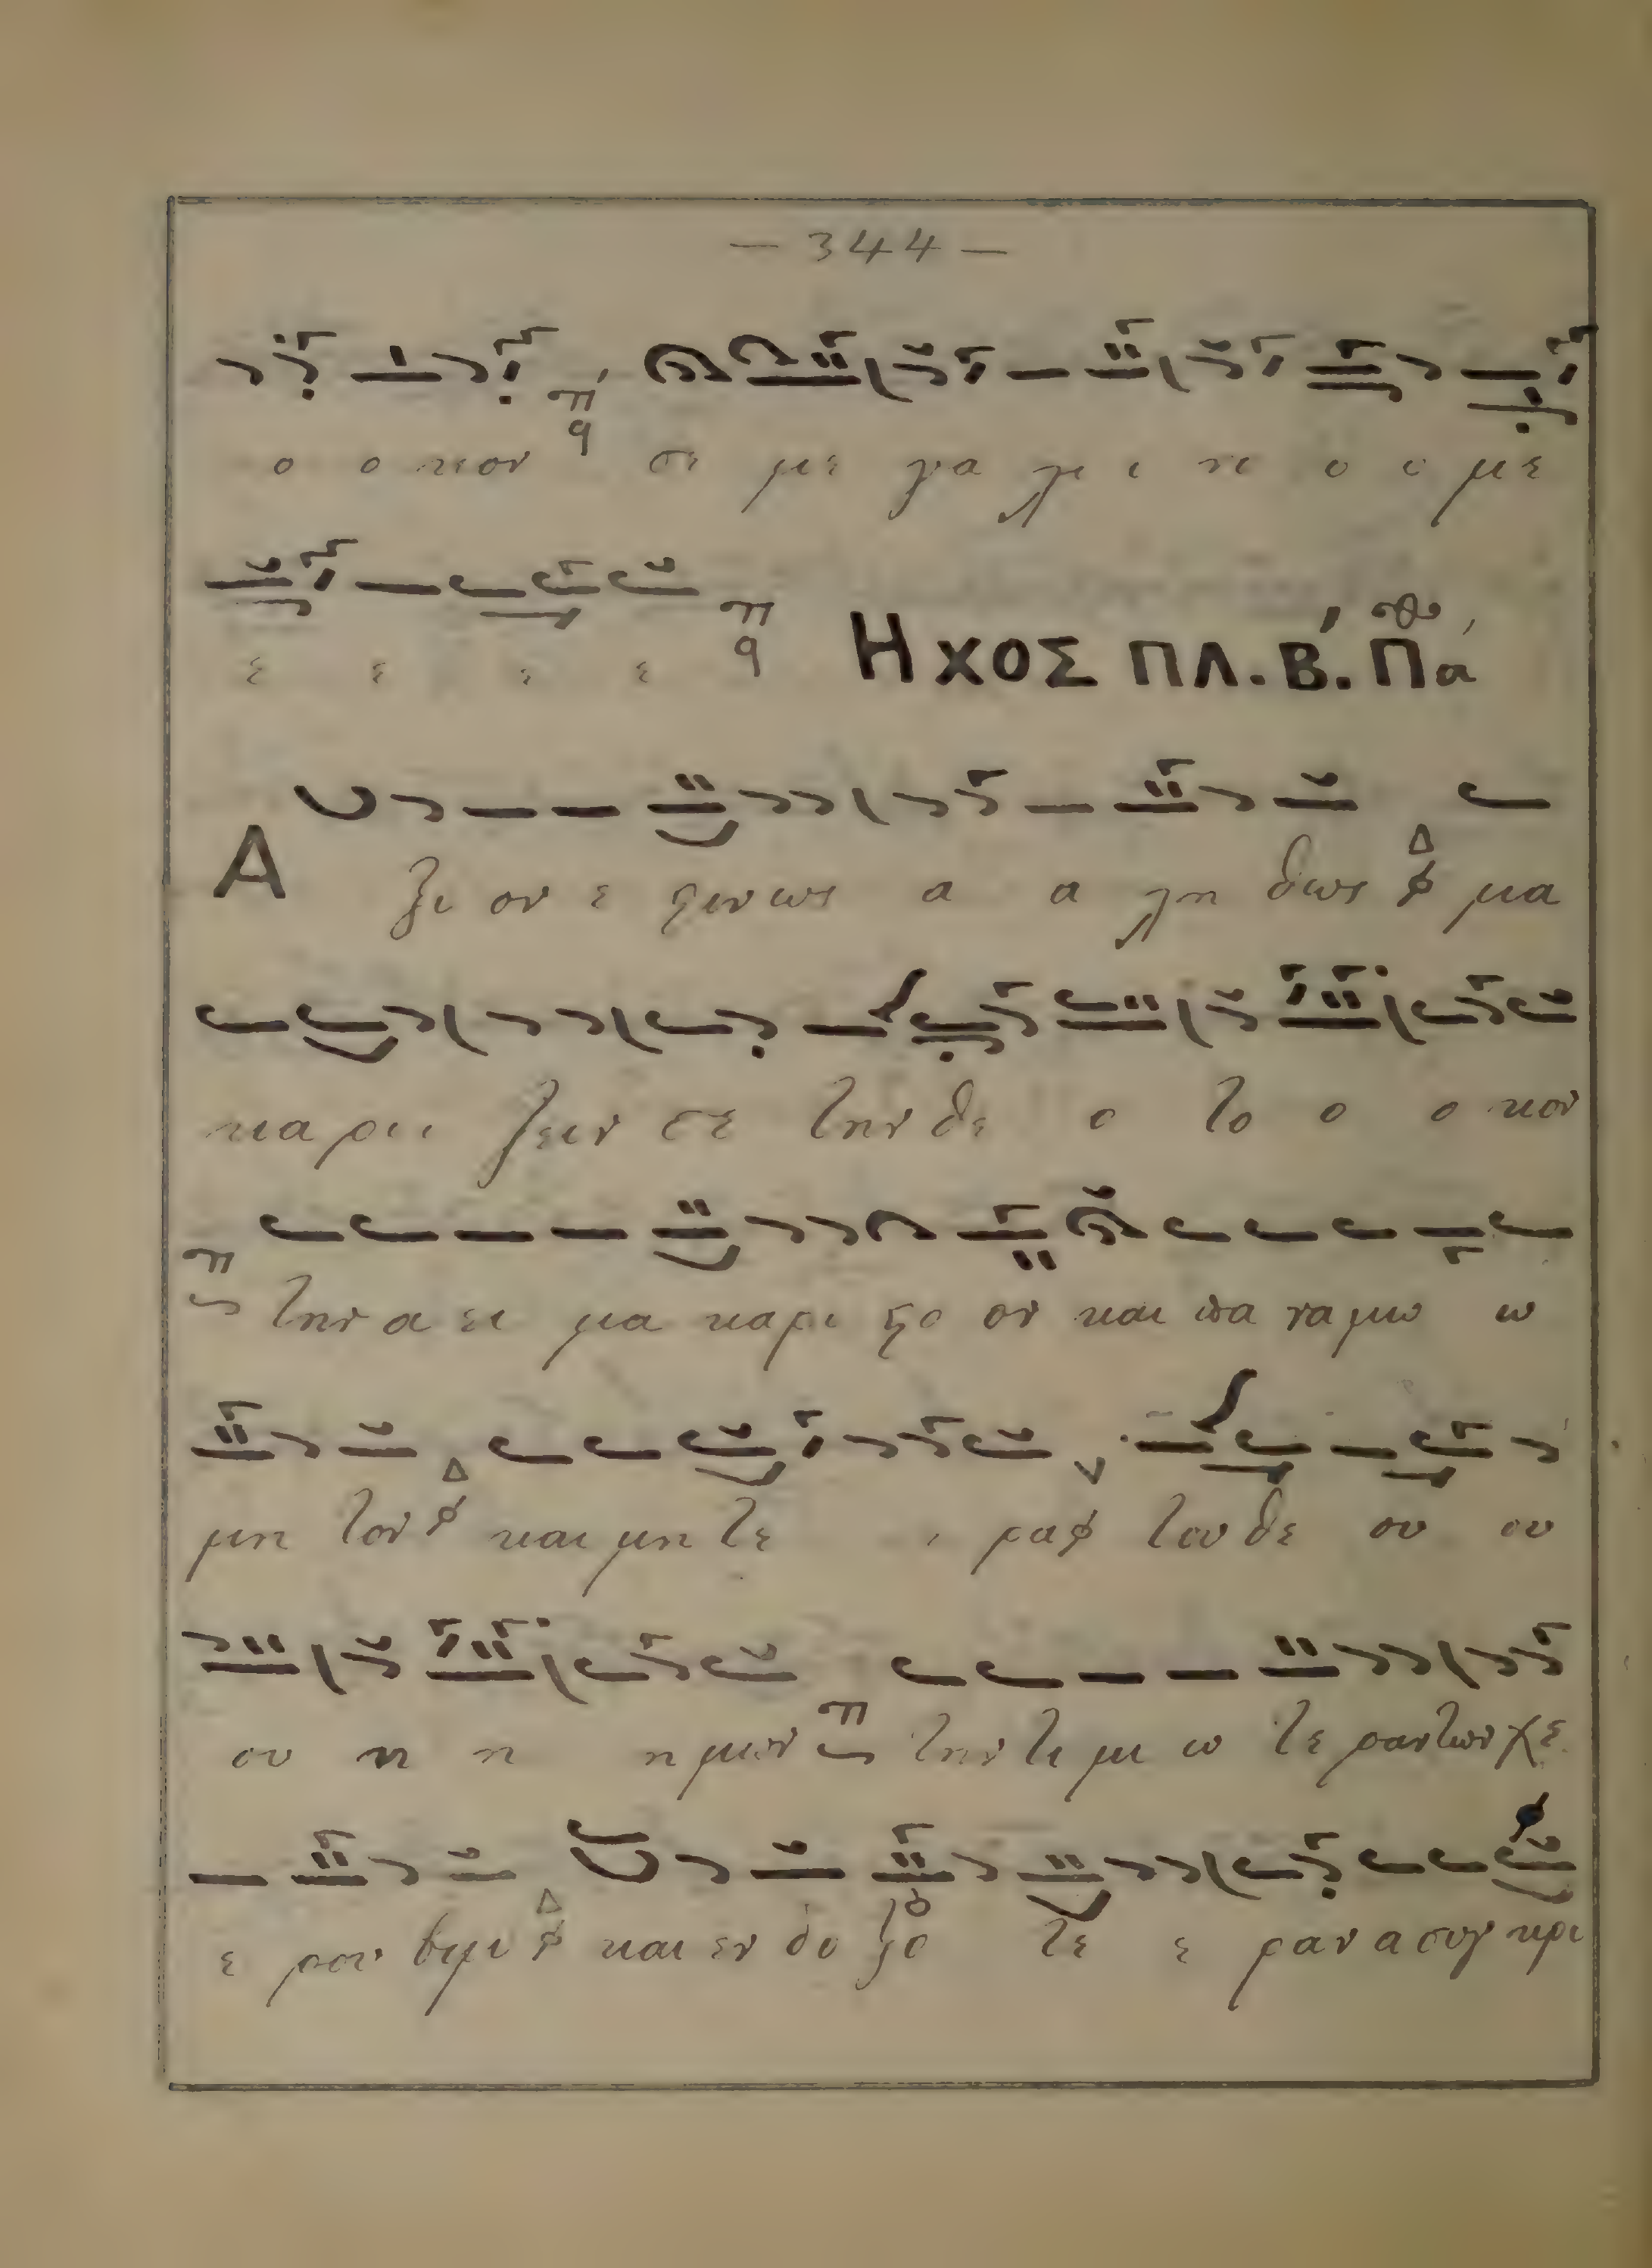 — 344 —
ο ο κον σε με γα λυ ι νο ο ο με
ε ε ε ε Ηχος πλ. Β΄. Πα
Α ξι ον ε στιν ως α α λη θως μα
κα ρι ι ζειν σε την θε ο το ο ο κον
την α ει μα κα ρι στο ον και πα να μω ω
μη τον και μη τε ρα του θε ου ου
ου η η η μων την τι μι ω τε ραν των χε
ε ρου βιμ και εν δο ξο τε ε ραν α συγ κρι